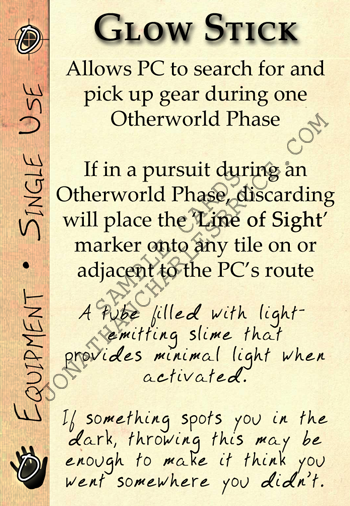 Glow Stick
Allows PC to search for and
pick up gear during one
Otherworld Phase
If in a pursuit during an
Otherworld Phase, discarding
will place the 'Line of Sight'
marker onto any tile on or
adjacent to the PC's route
A tube filled with light-
emitting slime that
provides minimal light when
activated.
If something spots you in the
dark, throwing this may be
enough to make it think you
went somewhere you didn't.
Equipment • Single Use
SAMPLE CARDS
JONATHANCHARLESERVICE.COM